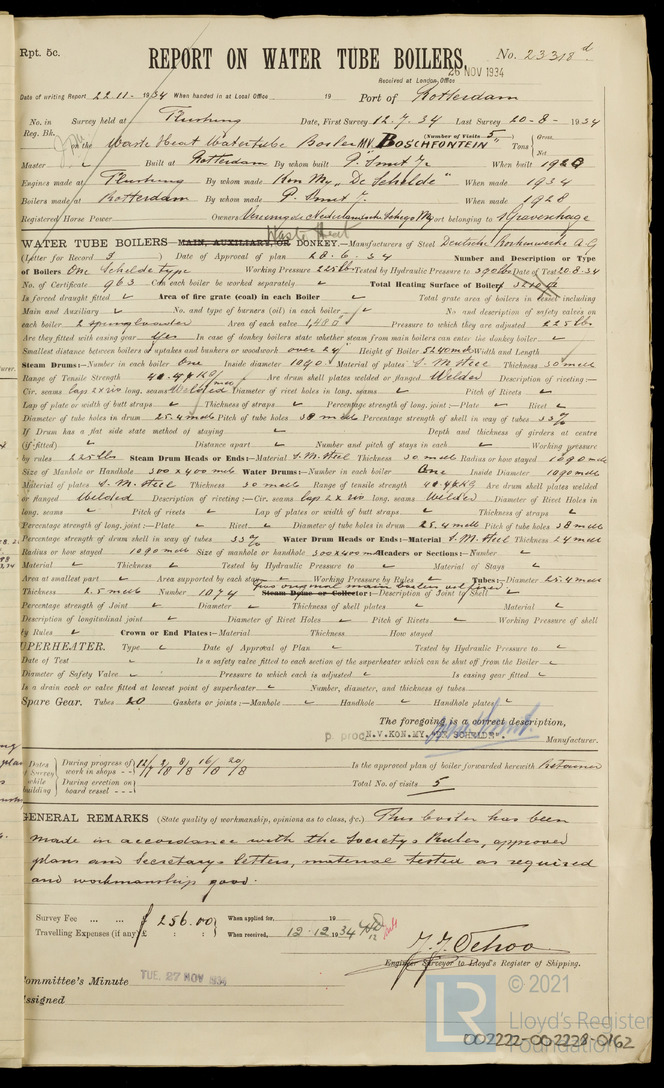 Rpt. 5c.
REPORT ON WATER TUBE BOILERS. No. 23318 d
Received at London Office 26 NOV 1934
Date of writing Report 22.11.1934 When handed in at Local Office 19 Port of Rotterdam
No. in Survey held at Flushing Date, First Survey 12.7.34 Last Survey 20-8-1934
Reg. Bk. (Number of Visits 5)
on the Waste Heat Watertube Boiler M.V. "BOSCHFONTEIN" Tons Gross Net
Master Built at Rotterdam By whom built P. Smit Jr. When built 1928
Engines made at Flushing By whom made Kon My "De Schelde" When made 1934
Boilers made at Rotterdam By whom made P. Smit Jr. When made 1928
Registered Horse Power Owners Vereenigde Nederlandsche Scheepv My Port belonging to 's Gravenhage
Waste Heat
WATER TUBE BOILERS MAIN, AUXILIARY, OR DONKEY.—Manufacturers of Steel Deutsche Röhrenwerke A.G
(Letter for Record S) Date of Approval of plan 28.6.34 Number and Description or Type
of Boilers One Schelde type Working Pressure 225 lbs Tested by Hydraulic Pressure to 390 lbs Date of Test 20.8.34
No. of Certificate 963 Can each boiler be worked separately Total Heating Surface of Boilers 3210
Is forced draught fitted Area of fire grate (coal) in each Boiler Total grate area of boilers in vessel including
Main and Auxiliary No. and type of burners (oil) in each boiler No. and description of safety valves on
each boiler 2 spring loaded Area of each valve Pressure to which they are adjusted 225 lbs
Are they fitted with easing gear Yes In case of donkey boilers state whether steam from main boilers can enter the donkey boiler
Smallest distance between boilers or uptakes and bunkers or woodwork over 24" Height of Boiler 5240 m/m Width and Length
Steam Drums:—Number in each boiler One Inside diameter 1090 Material of plates S.M. Steel Thickness 30 m/m
Range of Tensile Strength Are drum shell plates welded or flanged Welded Description of riveting:—
Cir. seams lap 2 x riv long. seams Welded Diameter of rivet holes in long. seams Pitch of Rivets
Lap of plate or width of butt straps Thickness of straps Percentage strength of long. joint:—Plate Rivet
Diameter of tube holes in drum 25.4 mm Pitch of tube holes 38 mm Percentage strength of shell in way of tubes 33%
If Drum has a flat side state method of staying Depth and thickness of girders at centre
(if fitted) Distance apart Number and pitch of stays in each Working pressure
by rules 225 lbs Steam Drum Heads or Ends:—Material S.M. Steel Thickness 30 mm Radius or how stayed 1090 mm
Size of Manhole or Handhole 300 x 400 mm Water Drums:—Number in each boiler One Inside Diameter 1090 mm
Material of plates S.M. Steel Thickness 30 mm Range of tensile strength Are drum shell plates welded
or flanged Welded Description of riveting:—Cir. seams lap 2 x riv long. seams Welded Diameter of Rivet Holes in
long. seams Pitch of rivets Lap of plates or width of butt straps Thickness of straps
Percentage strength of long. joint:—Plate Rivet Diameter of tube holes in drum 25.4 mm Pitch of tube holes 38 mm
Percentage strength of drum shell in way of tubes 33% Water Drum Heads or Ends:—Material S.M. Steel Thickness 24 mm
Radius or how stayed 1090 mm Size of manhole or handhole 300 x 400 mm Headers or Sections:—Number
Material Thickness Tested by Hydraulic Pressure to Material of Stays
Area at smallest part Area supported by each stay Working Pressure by Rules Tubes:—Diameter 25.4 mm
Thickness 2.5 mm Number 1074 Steam Dome or Collector:—Description of Joint to Shell
Percentage strength of Joint Diameter Thickness of shell plates Material
Description of longitudinal joint Diameter of Rivet Holes Pitch of Rivets Working Pressure of shell
by Rules Crown or End Plates:—Material Thickness How stayed
UPERHEATER. Type Date of Approval of Plan Tested by Hydraulic Pressure to
Date of Test Is a safety valve fitted to each section of the superheater which can be shut off from the Boiler
Diameter of Safety Valve Pressure to which each is adjusted Is easing gear fitted
Is a drain cock or valve fitted at lowest point of superheater Number, diameter, and thickness of tubes
Spare Gear. Tubes 20 Gaskets or joints:—Manhole Handhole Handhole plates
The foregoing is a correct description,
p. proc. N.V. KON. MY. "DE SCHELDE". Manufacturer.
Dates of Survey while building
During progress of work in shops 12/7 2/8 8/8 16/8 20/8 Is the approved plan of boiler forwarded herewith Retained
During erection on board vessel Total No. of visits 5
GENERAL REMARKS (State quality of workmanship, opinions as to class, &c.) This boiler has been
made in accordance with the Society's Rules, approved
plans and Secretary's letters, material tested as required
and workmanship good.
Survey Fee £ 256.00 When applied for, 19
Travelling Expenses (if any) £ : : When received, 12.12.1934
J.J. Ochoo
Engineer Surveyor to Lloyd's Register of Shipping.
Committee's Minute TUE. 27 NOV 1934
Assigned
LR © 2021
Lloyd's Register
Foundation
002222-002228-0162